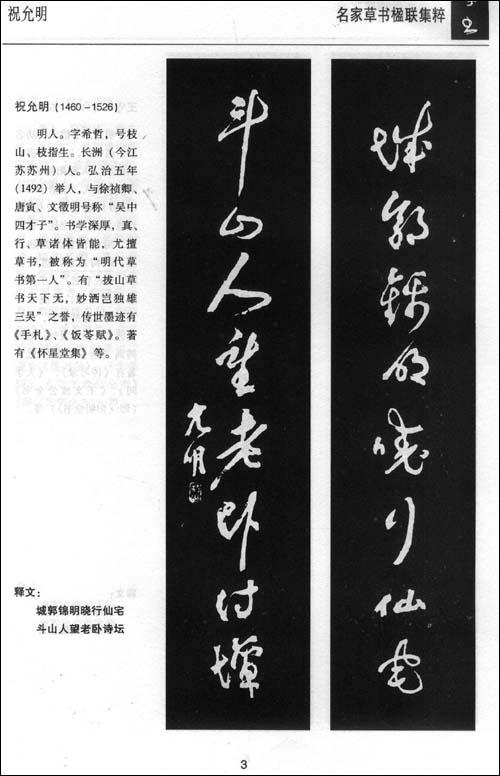 祝允明
名家草书楹联集粹
祝允明 (1460-1526)
明人。字希哲，号枝
山、枝指生。长洲（今江
苏苏州）人。弘治五年
(1492) 举人，与徐祯卿、
唐寅、文徵明号称“吴中
四才子”。书学深厚，真、
行、草诸体皆能，尤擅
草书，被称为“明代草
书第一人”。有“拔山草
书天下无，妙洒岂独雄
三吴”之誉，传世墨迹有
《手札》、《饭苓赋》。著
有《怀星堂集》等。
城郭锦明晓行仙宅
斗山人望老卧诗坛
允明
释文：
城郭锦明晓行仙宅
斗山人望老卧诗坛
3